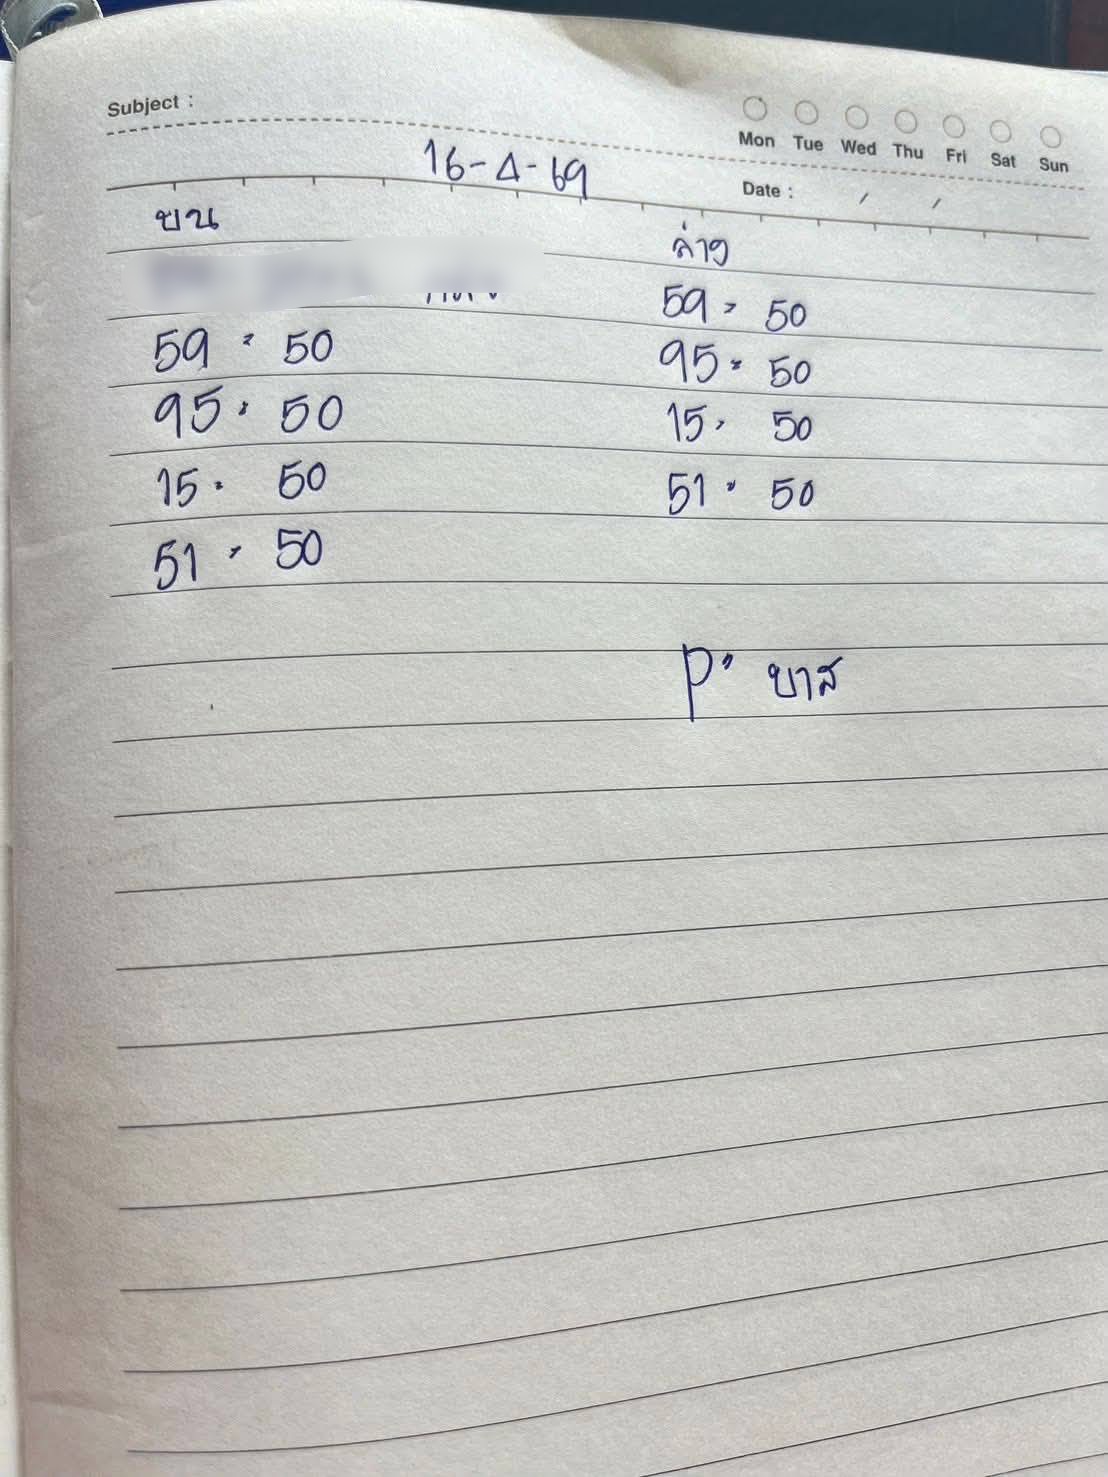 Subject :
Mon Tue Wed Thu Fri Sat Sun
16-4-69
Date : / /
บน
ล่าง
59 = 50
95 = 50
15 = 50
51 = 50
59 = 50
95 = 50
15 = 50
51 = 50
P' บาส